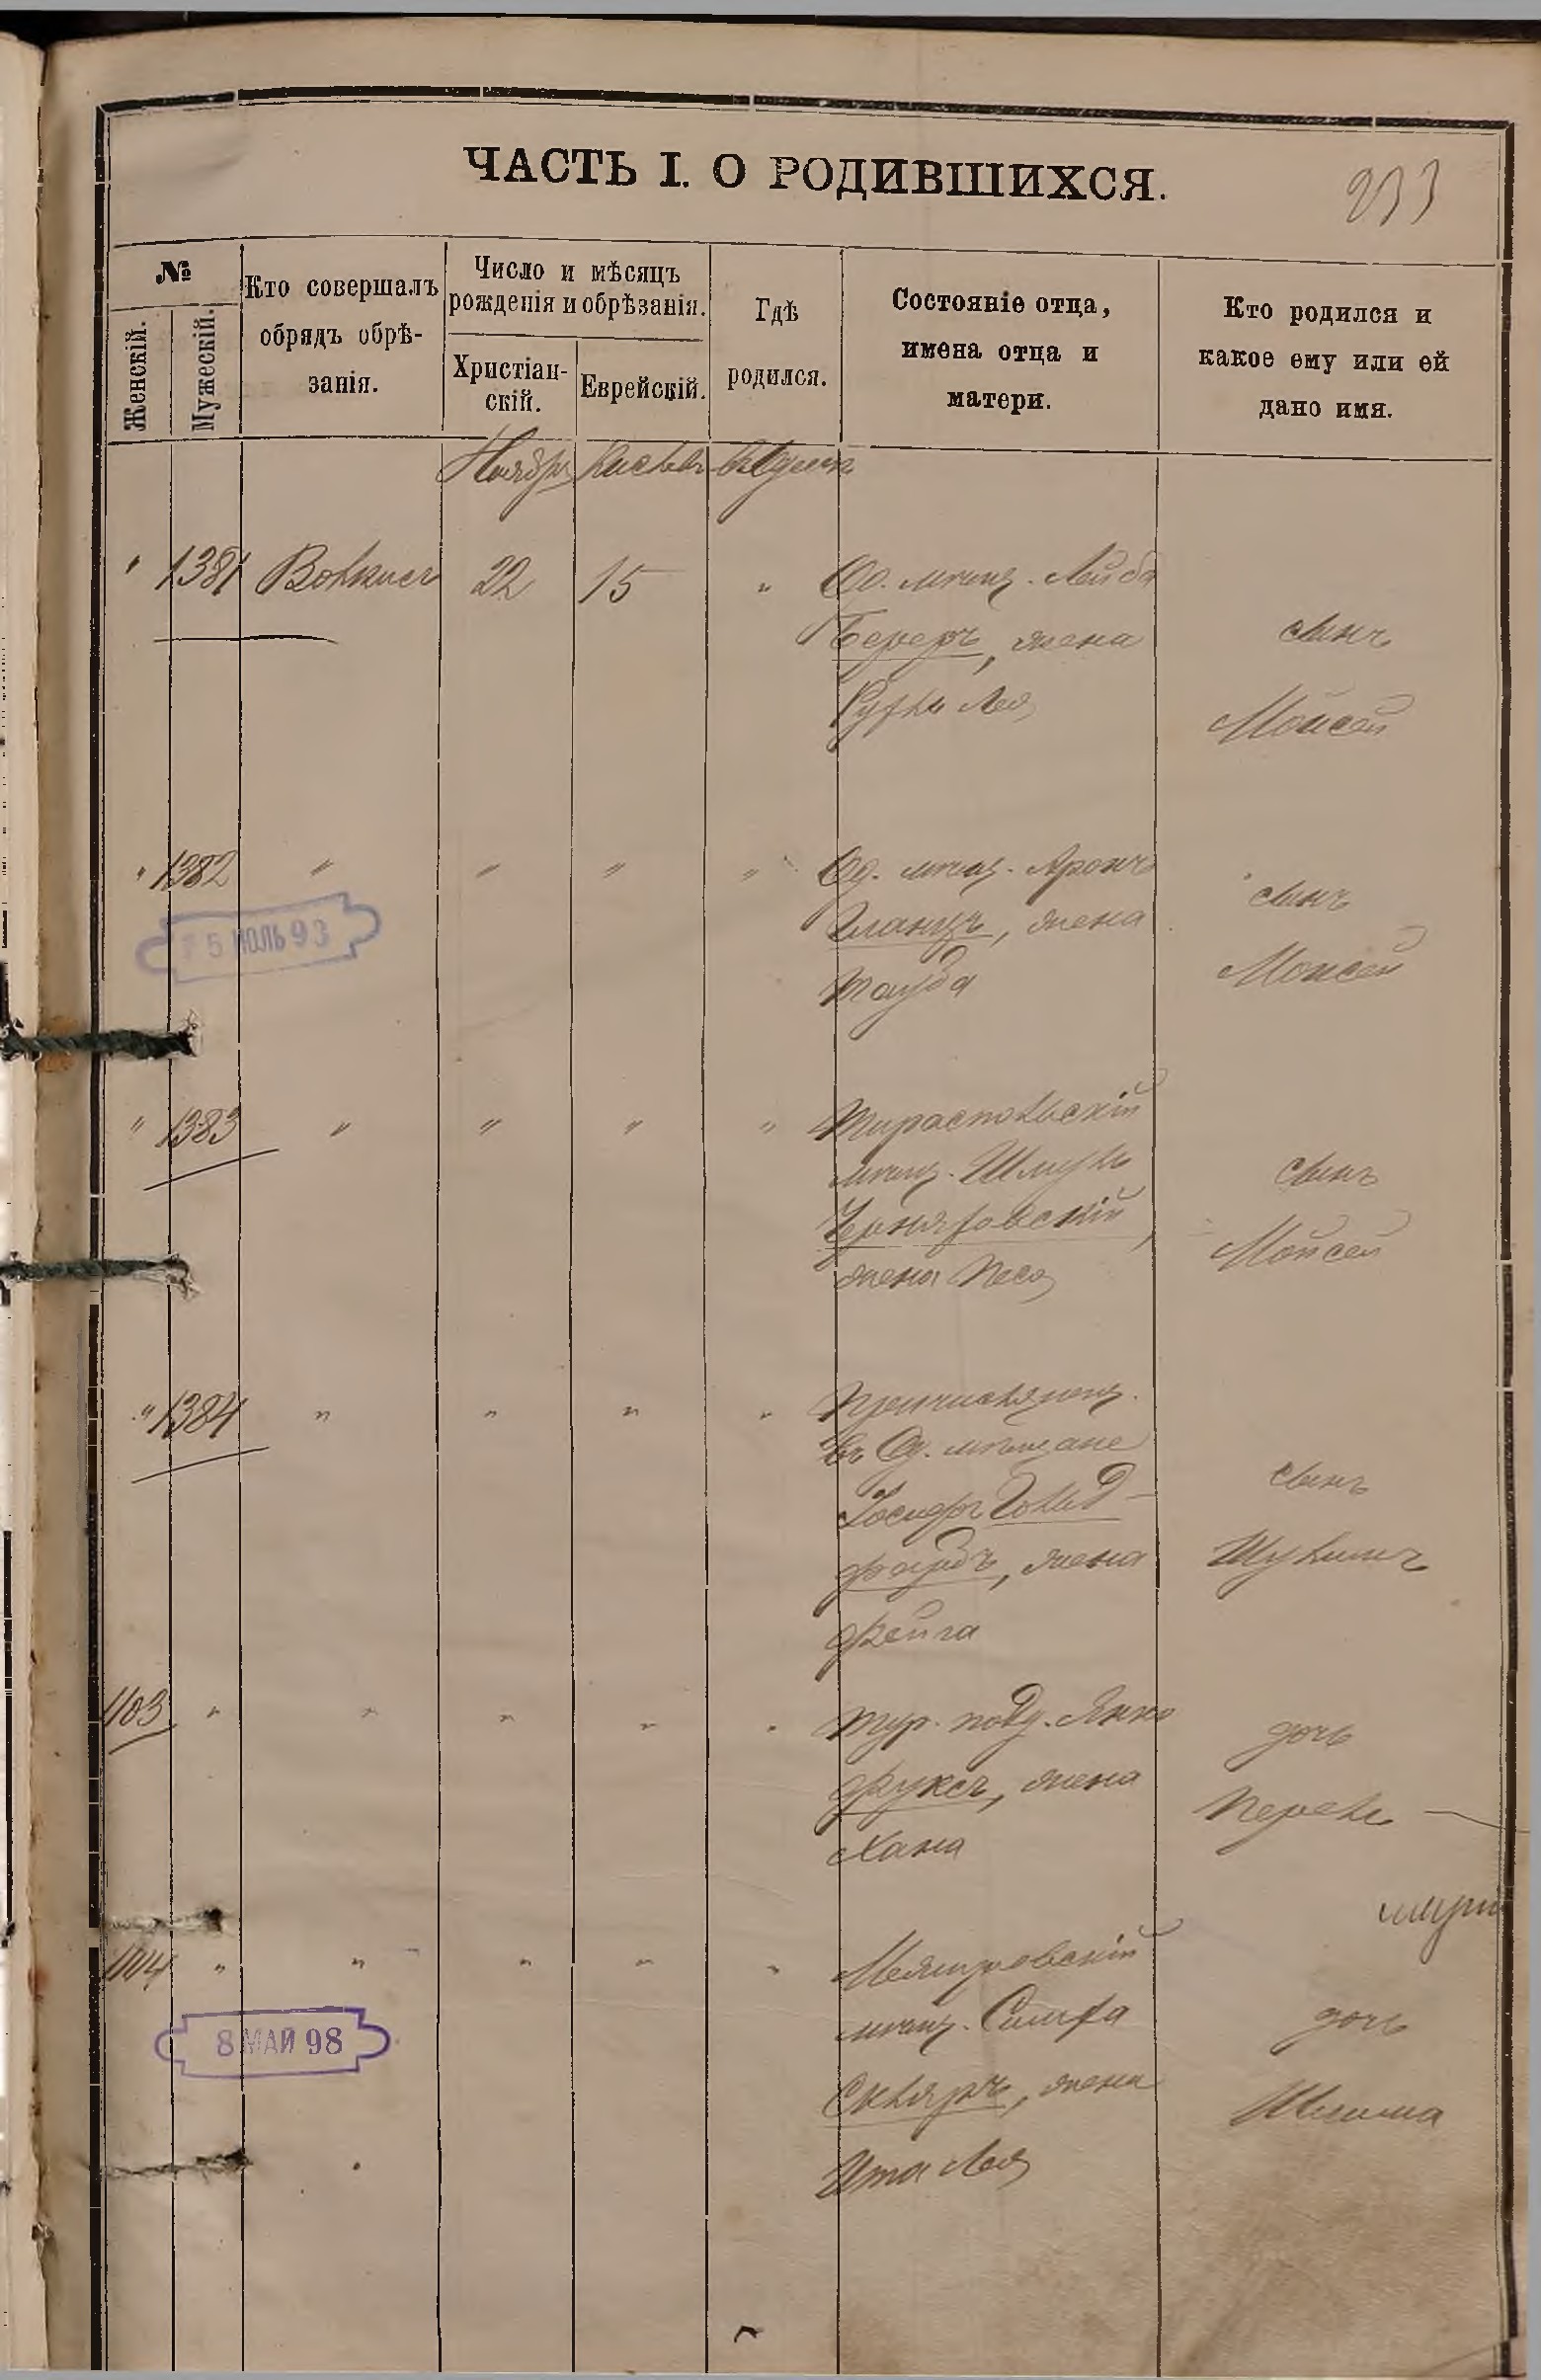 ЧАСТЬ I. О РОДИВШИХСЯ.
233
№
Женскій.
Мужескій.
Кто совершалъ
обрядъ обрѣ-
занія.
Число и мѣсяцъ
рожденія и обрѣзанія.
Христіан-
скій.
Еврейскій.
Гдѣ
родился.
Состояніе отца,
имена отца и
матери.
Кто родился и
какое ему или ей
дано имя.
Ноября Кислевъ въ Одессѣ
" 1381 22 15 " Од. мѣщ. Лейба
Береръ, жена
Рухль Лея
сынъ
Мойсей
" 1382 " " " " Од. мѣщ. Аронъ
Гланцъ, жена
Тауба
сынъ
Мойсей
5 ИЮЛЬ 93
" 1383 " " " " Тираспольскій
мѣщ. Шмуль
Черняховскій,
жена Песя
сынъ
Мойсей
" 1384 " " " " Причисляющ.
въ Од. мѣщане
Іосифъ Гольд-
фарбъ, жена
Фейга
сынъ
Шулимъ
1103 " " " " " Тур. подд. Янко
Фуксъ, жена
Хана
дочь
Перель
1104 " " " " "
мѣщ. Симха
Скляръ, жена
Ита Лея
дочь
8 МАЙ 98